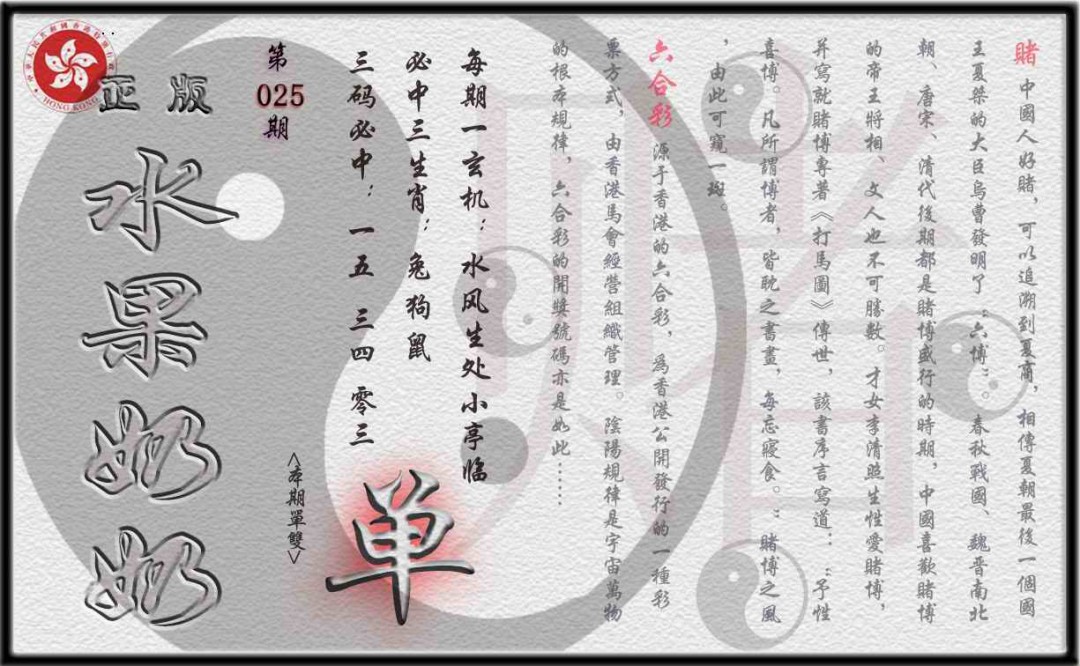 賭 中國人好賭，可以追溯到夏商，相傳夏朝最後一個國
王夏桀的大臣烏曹發明了“六博”。春秋戰國、魏晋南北
朝、唐宋、清代後期都是賭博盛行的時期，中國喜歡賭博
的帝王將相、文人也不可勝數。才女李清照生性愛賭博，
并寫就賭博專著《打馬圖》傳世，該書序言寫道：“予性
喜博。凡所謂博者，皆耽之書畫，每忘寢食。”賭博之風
，由此可窺一斑。
六合彩 源于香港的六合彩，為香港公開發行的一種彩
票方式，由香港馬會經營組織管理。陰陽規律是宇宙萬物
的根本規律，六合彩的開獎號碼亦是如此……
每期一玄机：水风生处小亭临
必中三生肖：兔狗鼠
三码必中：一五 三四 零三
单
<本期單雙>
第
025
期
正版
水果奶奶
HONG KONG